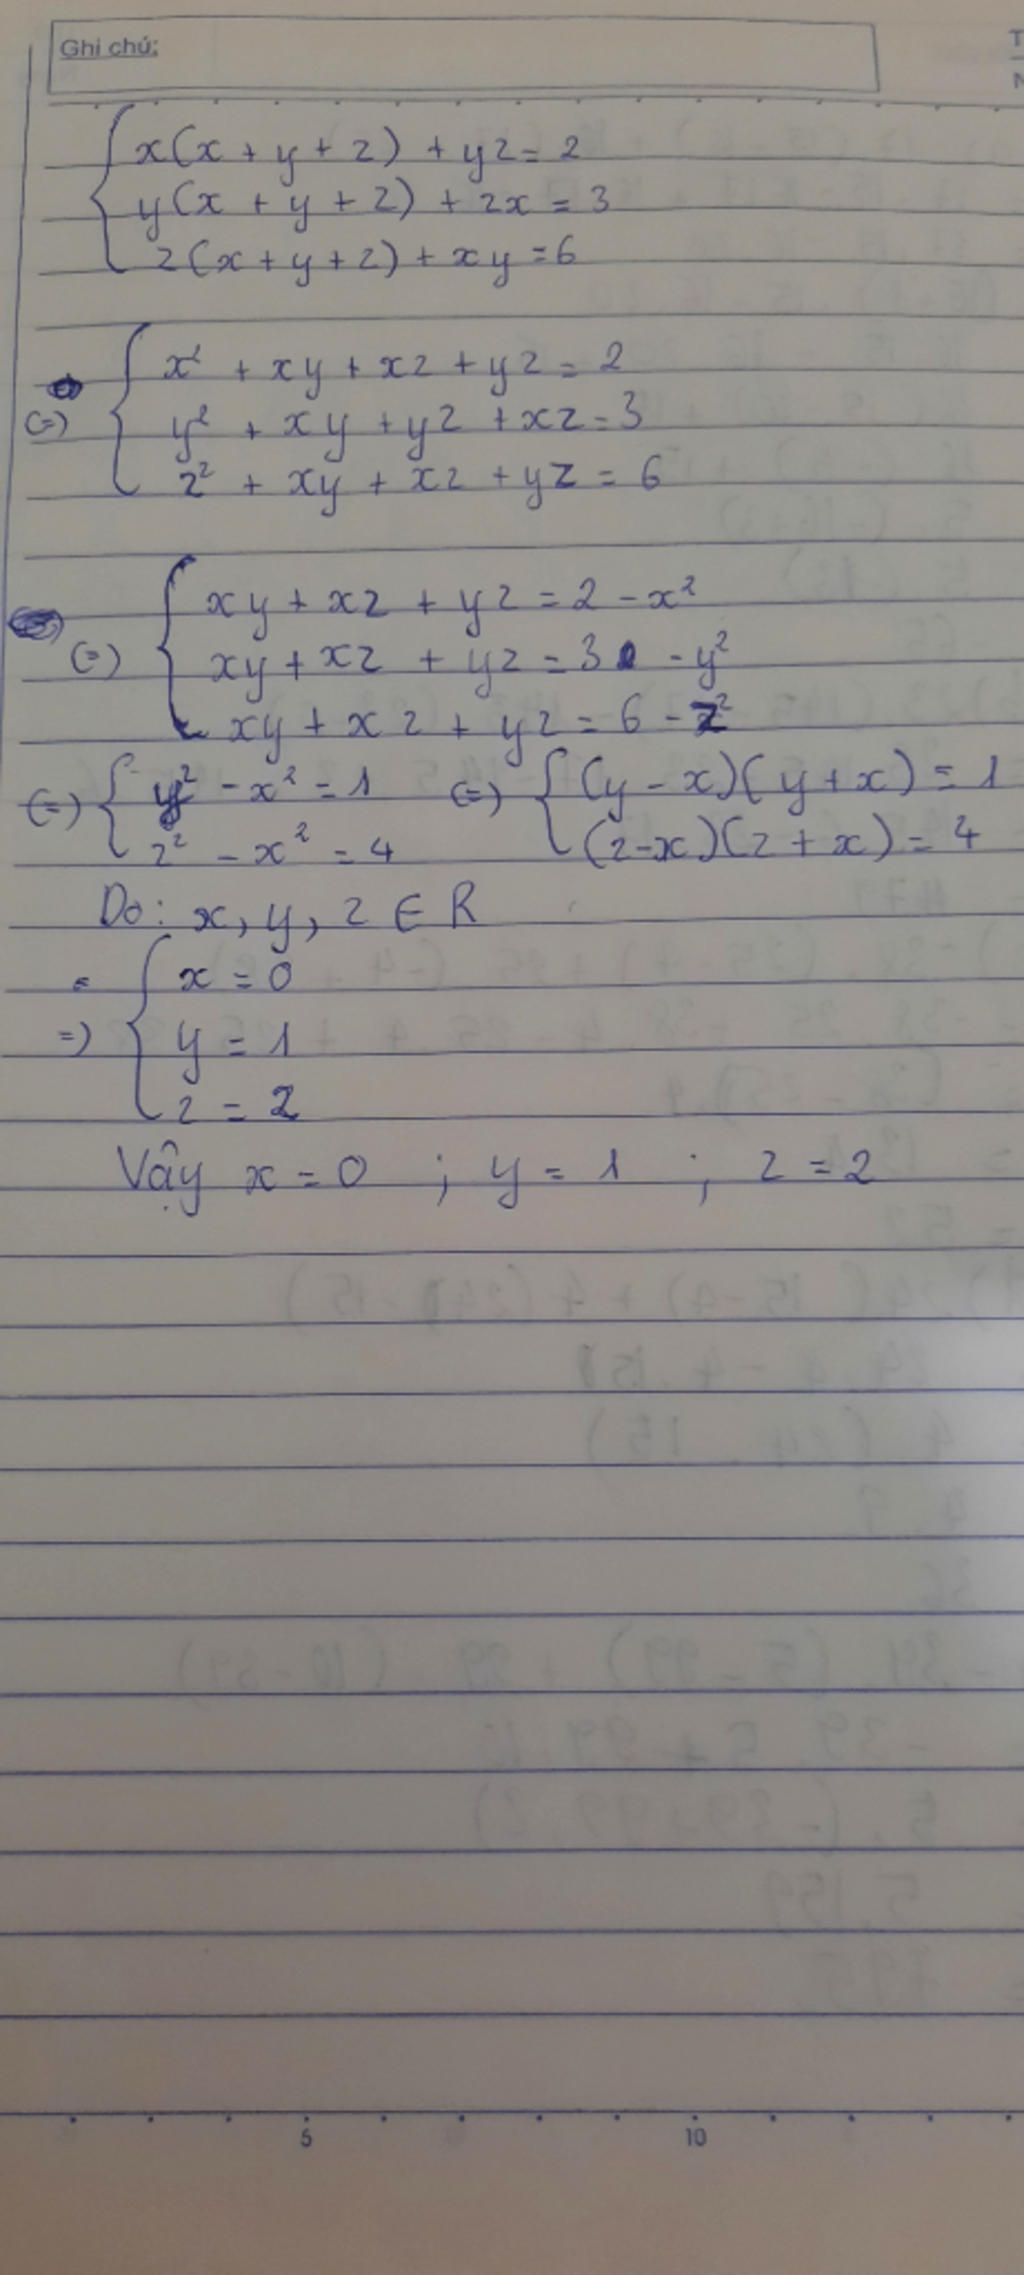 Ghi chú:
T
N
x(x + y + z) + yz = 2
y(x + y + z) + zx = 3
z(x + y + z) + xy = 6
x² + xy + xz + yz = 2
(=) y² + xy + yz + xz = 3
z² + xy + xz + yz = 6
xy + xz + yz = 2 - x²
(=) xy + xz + yz = 3 - y²
xy + xz + yz = 6 - z²
(=) y² - x² = 1 (=) (y - x)(y + x) = 1
z² - x² = 4 (z - x)(z + x) = 4
Do: x, y, z ∈ R
x = 0
=) y = 1
z = 2
Vậy x = 0 ; y = 1 ; z = 2
5 10